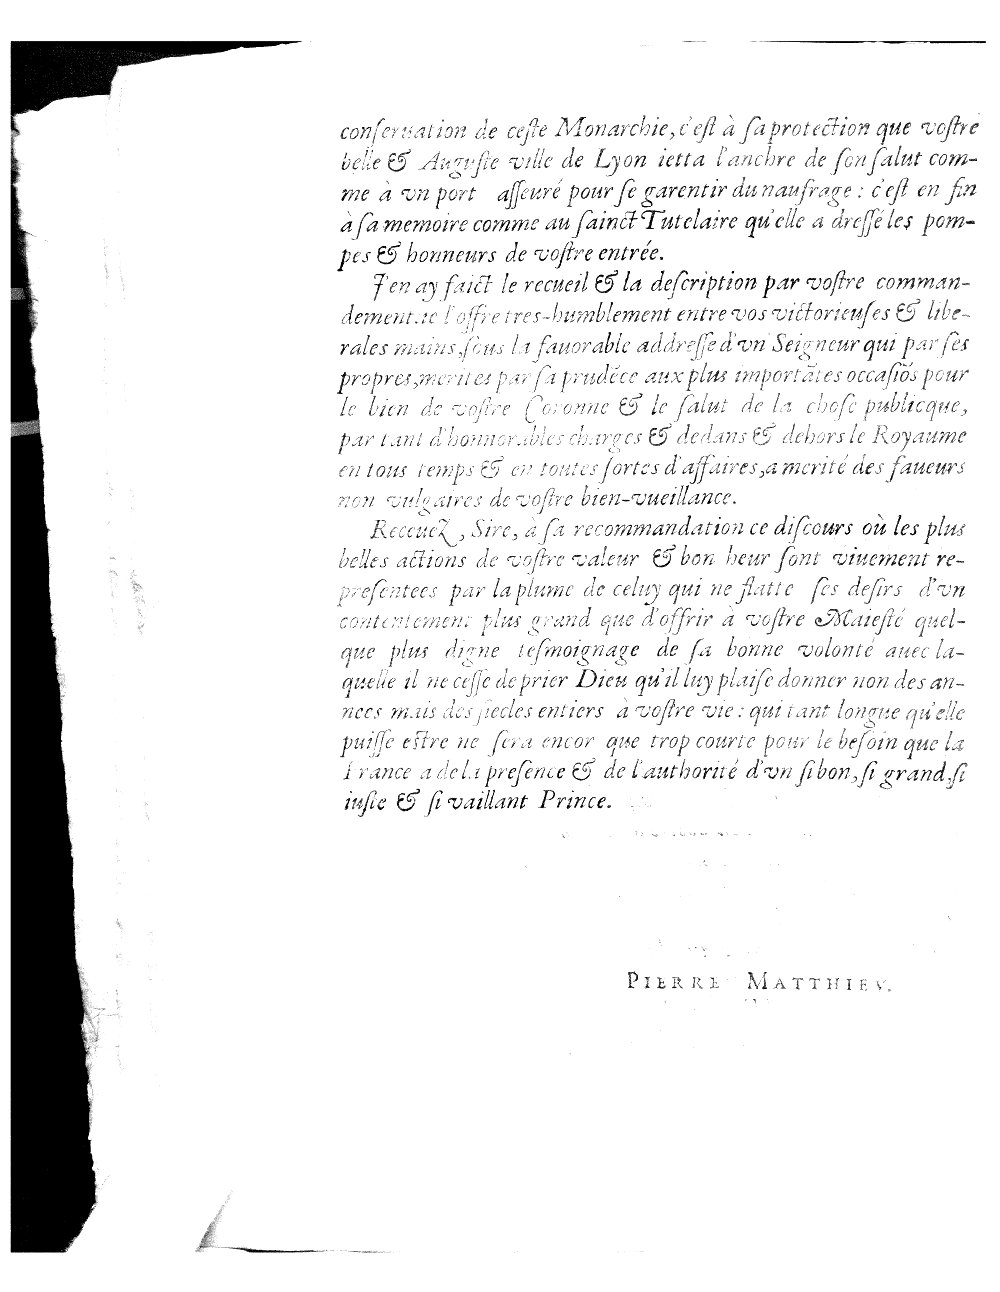 conſeruation de ceſte Monarchie, c'eſt à ſa protection que voſtre
belle & Auguſte ville de Lyon ietta l'anchre de ſon ſalut com-
me à vn port aſſeuré pour ſe garentir du naufrage : c'eſt en fin
à ſa memoire comme au ſainct Tutelaire qu'elle a dreſſé les pom-
pes & honneurs de voſtre entrée.
J'en ay faict le recueil & la deſcription par voſtre comman-
dement. ie l'offre tres-humblement entre vos victorieuſes & libe-
rales mains, ſous la fauorable addreſſe d'vn Seigneur qui par ſes
propres, merites par ſa prudẽce aux plus importãtes occaſiõs pour
le bien de voſtre Coronne & le ſalut de la choſe publicque,
par tant d'honnorables charges & dedans & dehors le Royaume
en tous temps & en toutes ſortes d'affaires, a merité des faueurs
non vulgaires de voſtre bien-vueillance.
Receuez, Sire, à ſa recommandation ce diſcours où les plus
belles actions de voſtre valeur & bon heur ſont viuement re-
preſentees par la plume de celuy qui ne flatte ſes deſirs d'vn
contentement plus grand que d'offrir à voſtre Maieſté quel-
que plus digne teſmoignage de ſa bonne volonté auec la-
quelle il ne ceſſe de prier Dieu qu'il luy plaiſe donner non des an-
nees mais des ſiecles entiers à voſtre vie : qui tant longue qu'elle
puiſſe eſtre ne ſera encor que trop courte pour le beſoin que la
France a de la preſence & de l'authorité d'vn ſi bon, ſi grand, ſi
iuſte & ſi vaillant Prince.
PIERRE MATTHIEV.